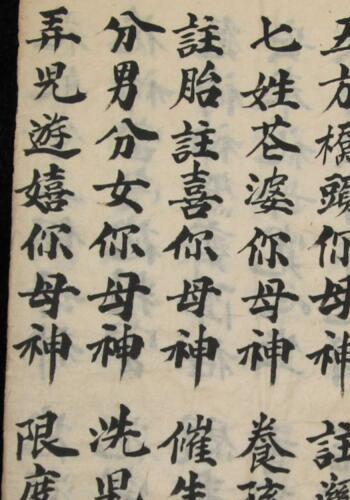 五方橋頭你母神 註
七姓花婆你母神 養孩
註胎註喜你母神 催生
分男分女你母神 洗
弄兒遊嬉你母神 限度